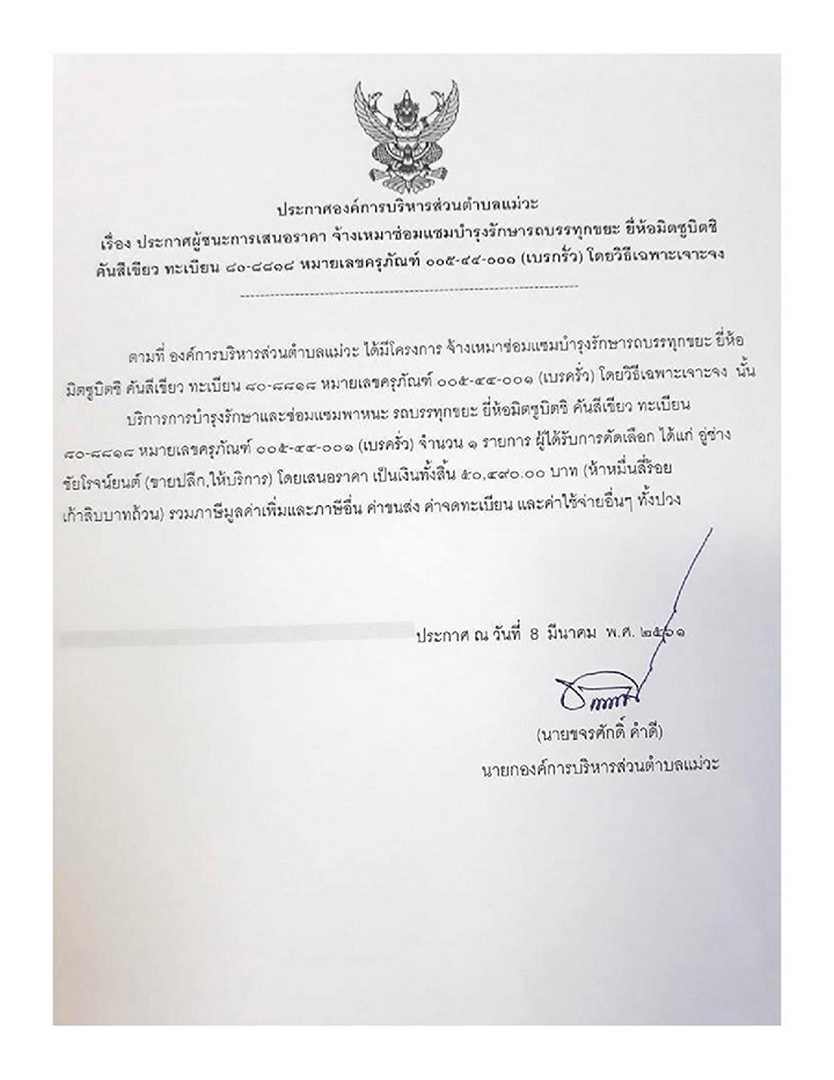 ประกาศองค์การบริหารส่วนตำบลแม่วะ
เรื่อง ประกาศผู้ชนะการเสนอราคา จ้างเหมาซ่อมแซมบำรุงรักษารถบรรทุกขยะ ยี่ห้อมิตซูบิตชิ
คันสีเขียว ทะเบียน ๘๐-๘๘๑๘ หมายเลขครุภัณฑ์ ๐๐๕-๔๔-๐๐๑ (เบรกรั่ว) โดยวิธีเฉพาะเจาะจง
ตามที่ องค์การบริหารส่วนตำบลแม่วะ ได้มีโครงการ จ้างเหมาซ่อมแซมบำรุงรักษารถบรรทุกขยะ ยี่ห้อ
มิตซูบิตชิ คันสีเขียว ทะเบียน ๘๐-๘๘๑๘ หมายเลขครุภัณฑ์ ๐๐๕-๔๔-๐๐๑ (เบรครั่ว) โดยวิธีเฉพาะเจาะจง นั้น
บริการการบำรุงรักษาและซ่อมแซมพาหนะ รถบรรทุกขยะ ยี่ห้อมิตซูบิตชิ คันสีเขียว ทะเบียน
๘๐-๘๘๑๘ หมายเลขครุภัณฑ์ ๐๐๕-๔๔-๐๐๑ (เบรครั่ว) จำนวน ๑ รายการ ผู้ได้รับการคัดเลือก ได้แก่ อู่ช่าง
ชัยโรจน์ยนต์ (ขายปลีก,ให้บริการ) โดยเสนอราคา เป็นเงินทั้งสิ้น ๕๐,๔๙๐.๐๐ บาท (ห้าหมื่นสี่ร้อย
เก้าสิบบาทถ้วน) รวมภาษีมูลค่าเพิ่มและภาษีอื่น ค่าขนส่ง ค่าจดทะเบียน และค่าใช้จ่ายอื่นๆ ทั้งปวง
ประกาศ ณ วันที่ 8 มีนาคม พ.ศ. ๒๕๖๑
(นายขจรศักดิ์ คำดี)
นายกองค์การบริหารส่วนตำบลแม่วะ